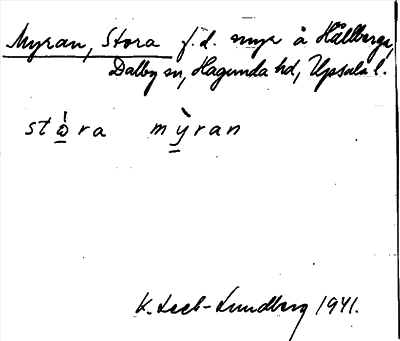 Myran, Stora f.d. myr å Hållberga,
Dalby sn, Hagunda hd, Uppsala l.
stⱺ́ra mỳran
K. Leeb-Lundberg 1941.